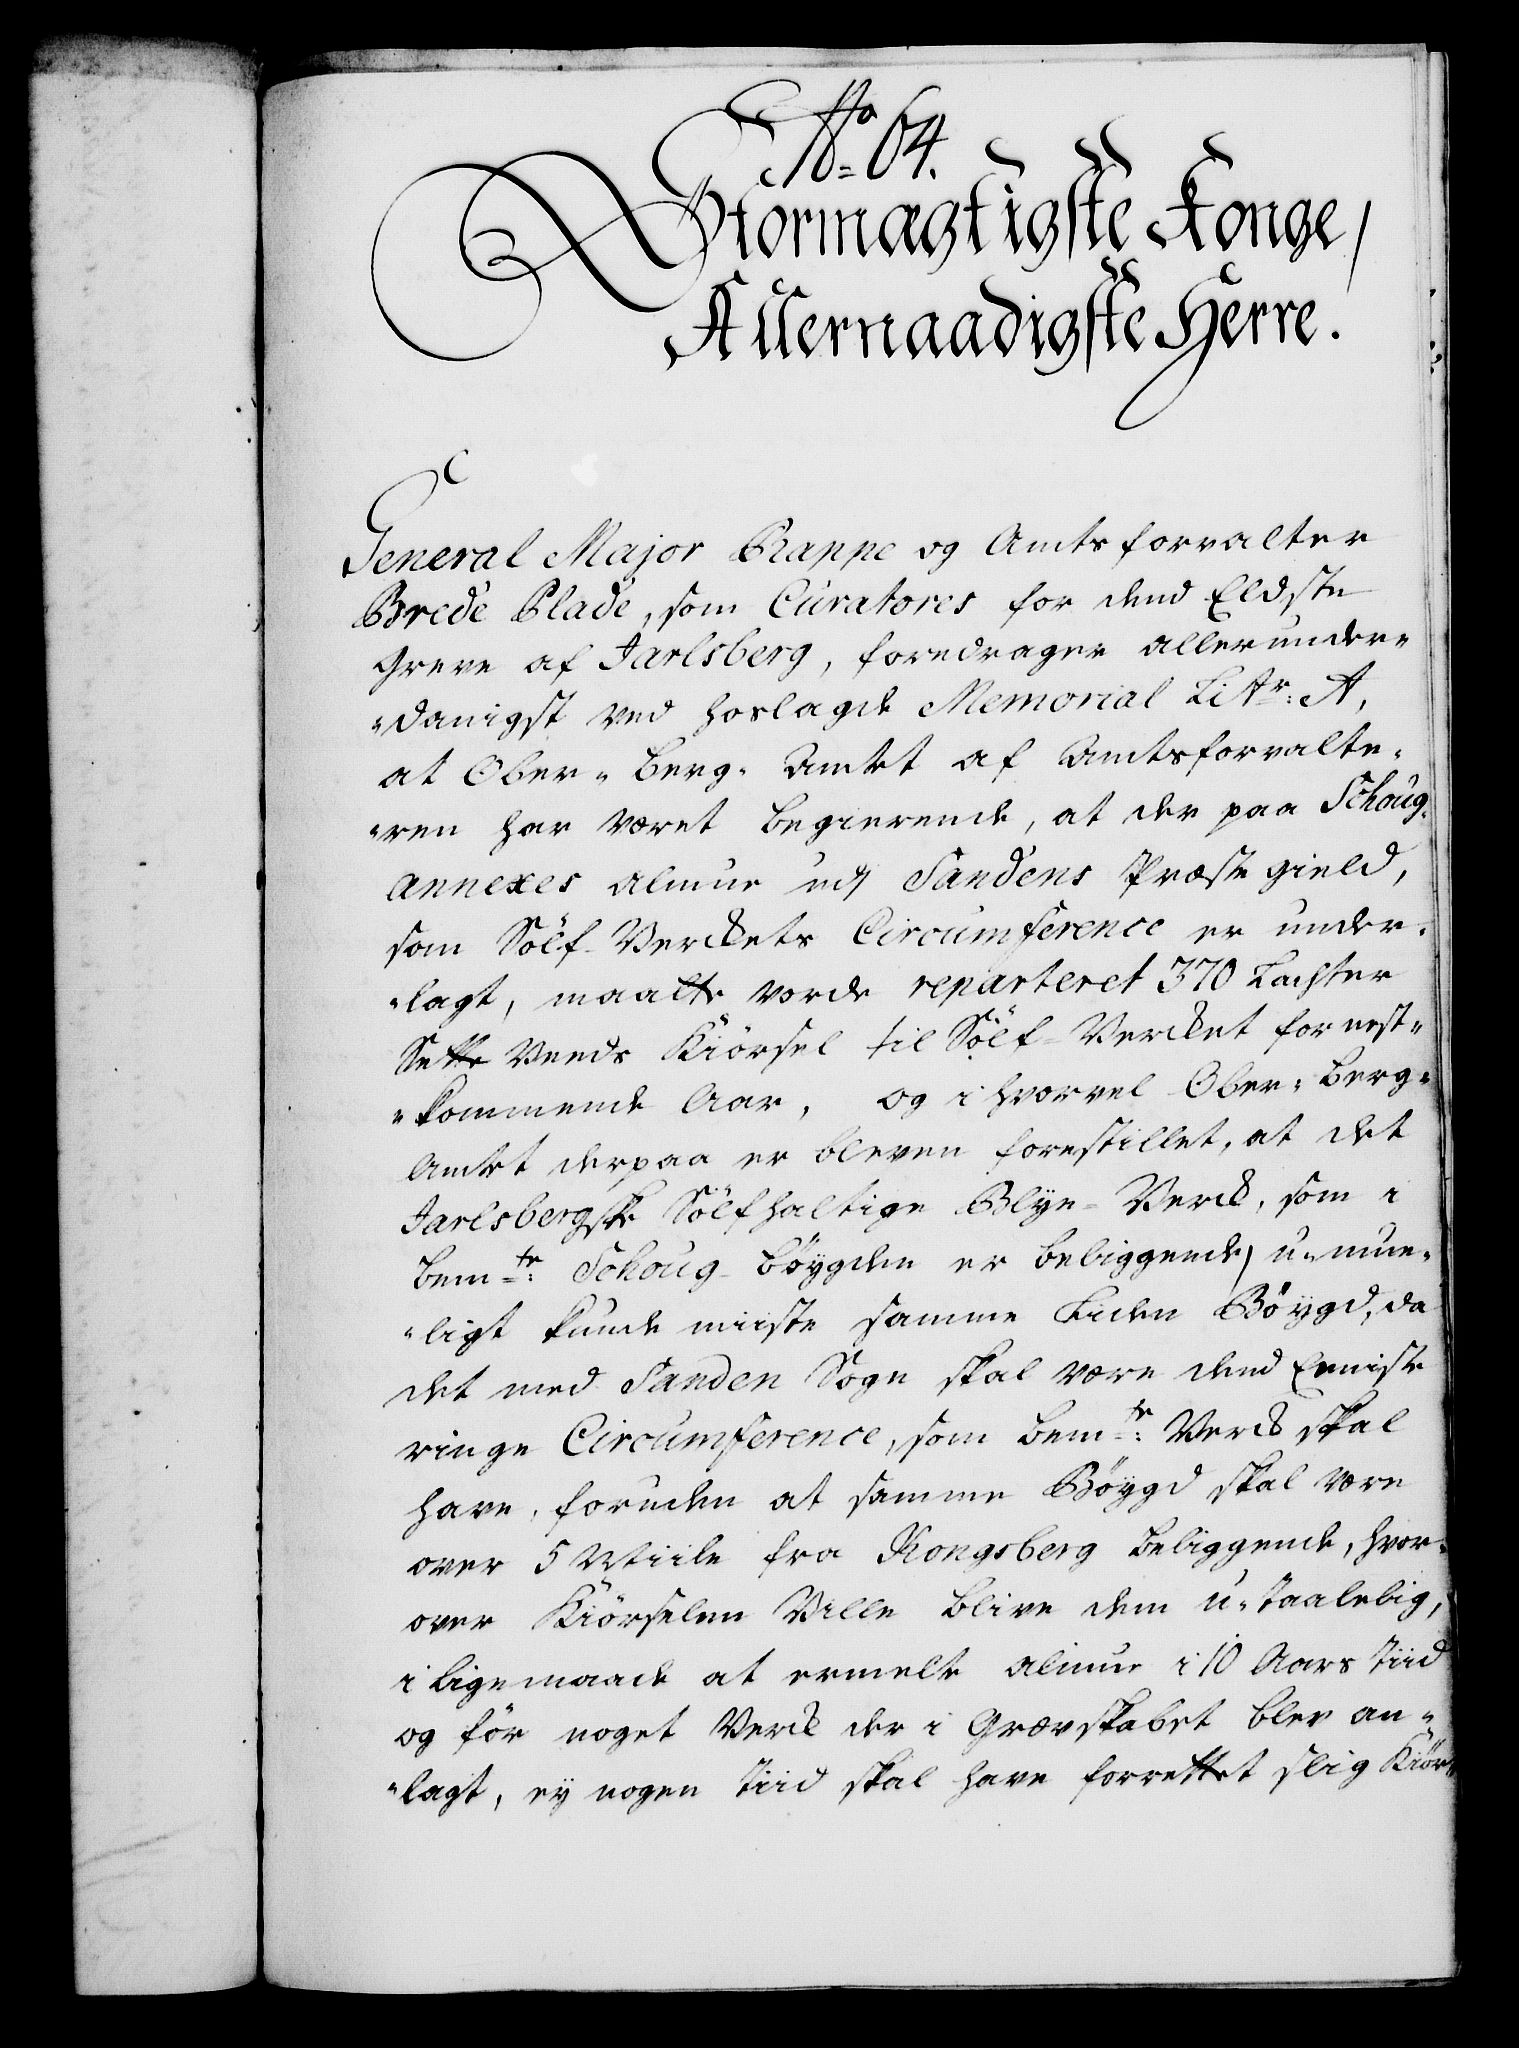 No= 64.
Stormægtigste Konge,
Allernaadigste Herre.
General Major Rappe og Amtsforvalter
Brede Plade, som Curatores for dend Eldste
Greve af Jarlsberg, foredrager allerunder=
=danigst ved hoslagde Memorial Littr: A,
at Ober= Berg= Amtet af Amtsforvalte=
=ren har været begierende, at der paa Schoug=
annexes almue udj Sandens Præstegield,
som Sölf-Verckets Circumference er under=
=lagt, maatte vorde reparteret 370 Lachter
Sette Veeds Kiörsel til Sölf-Vercket for nest=
=kommende Aar, og i hvorvel Ober= Berg=
Amtet derpaa er bleven forestillet, at det
Jarlsbergske Sölfhaltige Blye-Verck, som i
bemte: Schoug-böygden er beliggende, u=mue=
=ligt kunde miiste samme Liden Böygd, da
det med Sanden Sogn skal være dend Eeniste
ringe Circumference, som bemte: Verck skal
have, foruden at samme Böygd skal være
over 5 Miile fra Kongsberg beliggende, hvor=
over Kiörselen Ville blive dem u=taalelig,
i ligemaade at ermelte almue i 10 Aars Tiid
og för noget Verck der i Grævskabet blev an=
=lagt, ey nogen Tiid skal have forrettet slig Kiör=